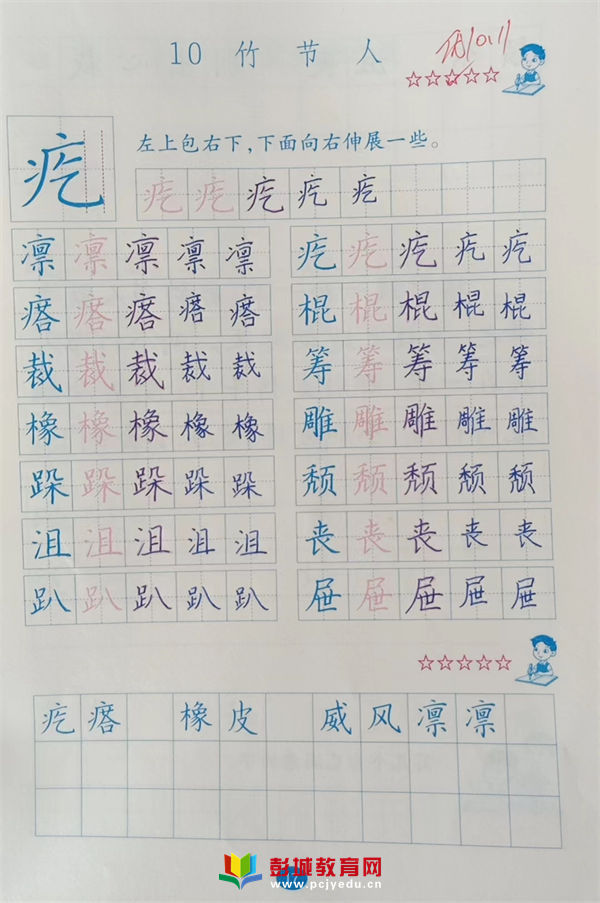 10 竹 节 人
10.11
疙
左上包右下，下面向右伸展一些。
疙 疙 疙 疙 疙
凛 凛 凛 凛 凛 疙 疙 疙 疙 疙
瘩 瘩 瘩 瘩 瘩 棍 棍 棍 棍 棍
裁 裁 裁 裁 裁 筹 筹 筹 筹 筹
橡 橡 橡 橡 橡 雕 雕 雕 雕 雕
跺 跺 跺 跺 跺 颓 颓 颓 颓 颓
沮 沮 沮 沮 沮 丧 丧 丧 丧 丧
趴 趴 趴 趴 趴 屉 屉 屉 屉 屉
疙 瘩 橡 皮 威 风 凛 凛
彭城教育网
www.pcjyedu.cn